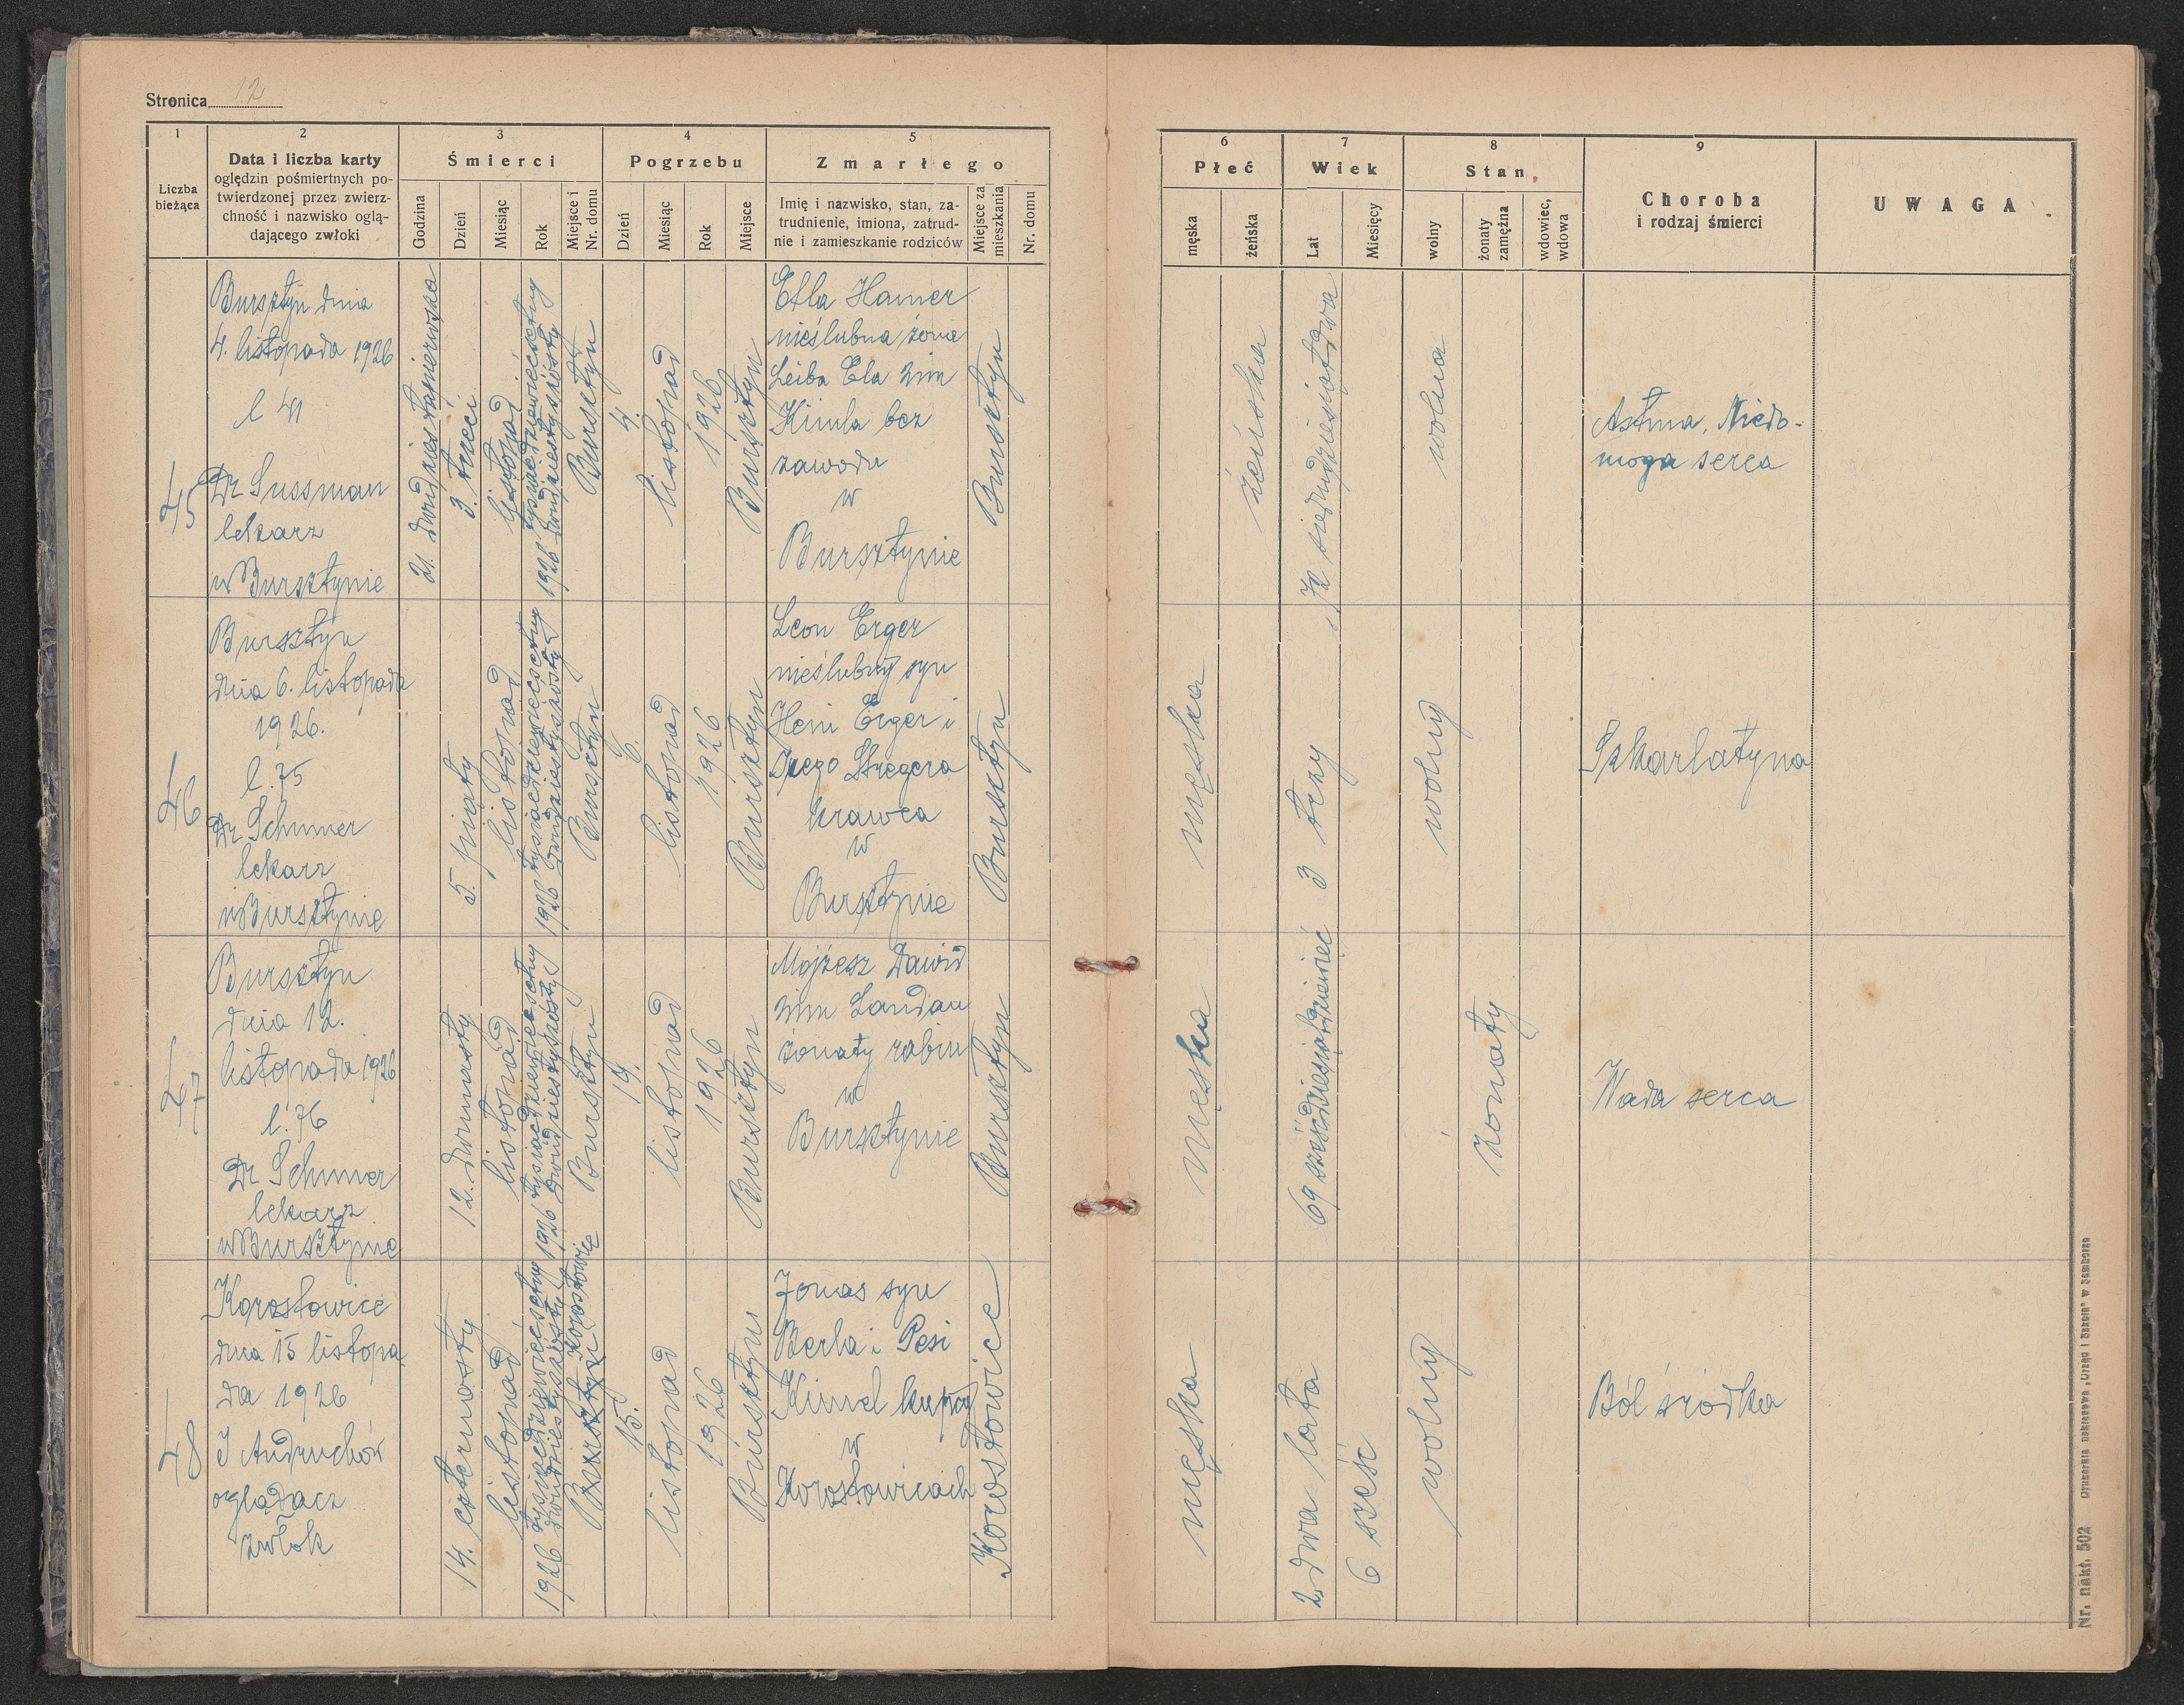 Stronica 12
1
2
3
4
5
Liczba bieżąca
Data i liczba karty
oględzin pośmiertnych po-
twierdzonej przez zwierz-
chność i nazwisko oglą-
dającego zwłoki
Śmierci
Godzina
Dzień
Miesiąc
Rok
Miejsce i
Nr. domu
Pogrzebu
Dzień
Miesiąc
Rok
Miejsce
Zmarłego
Imię i nazwisko, stan, za-
trudnienie, imiona, zatrud-
nie i zamieszkanie rodziców
Miejsce za
mieszkania
Nr. domu
6
7
8
9
Płeć
męska
żeńska
Wiek
Lat
Miesięcy
Stan
wolny
żonaty
zamężna
wdowiec,
wdowa
Choroba
i rodzaj śmierci
UWAGA
45
Bursztyn dnia
4. listopada 1926
Dr Sussman
lekarz
w Bursztynie
21. dwudziestapierwsza
3. trzeci
listopad
1926 tysiącdziewięćsetny
dwudziestyszósty
Bursztyn
4.
listopad
1926
Bursztyn
Etla Hamer
nieślubna żona
Leiba Ela nim
Kimla bez
zawodu
w
Bursztynie
Bursztyn
żeńska
72 siedmdziesiątdwa
wolna
Astma. Niedo-
moga serca
46
Bursztyn
dnia 6. listopada
1926.
l. 75
Dr Schmer
lekarz
w Bursztynie
5. piąty
listopad
1926 tysiącdziewięćsetny
dwudziestyszósty
Bursztyn
6.
listopad
1926
Bursztyn
Leon Erger
nieślubny syn
Heni Erger i
Stregera
krawca
w
Bursztynie
Bursztyn
męska
3 trzy
wolny
Szkarlatyna
47
Bursztyn
dnia 12.
listopada 1926
l. 76
Dr Schmer
lekarz
w Bursztynie
12. dwunasty
listopad
1926 tysiącdziewięćsetny
dwudziestyszósty
Bursztyn
14.
listopad
1926
Bursztyn
Mojżesz Dawid
nim Landau
żonaty rabin
w
Bursztynie
Bursztyn
męska
69 sześćdziesiątdziewięć
żonaty
Wada serca
48
Korostowice
dnia 15 listopa
da 1926
J Andruchów
oglądacz
zwłok
14. czternasty
listopad
1926 tysiącdziewięćsetny
dwudziestyszósty
Bursztyn Korostowice
15.
listopad
1926
Bursztyn
Jonas syn
Berla i Pesi
Kimel kupcy
w
Korostowicach
Korostowice
męska
2 dwa lata
6 sześć
wolny
Ból śródka
Nr. nakł. 502